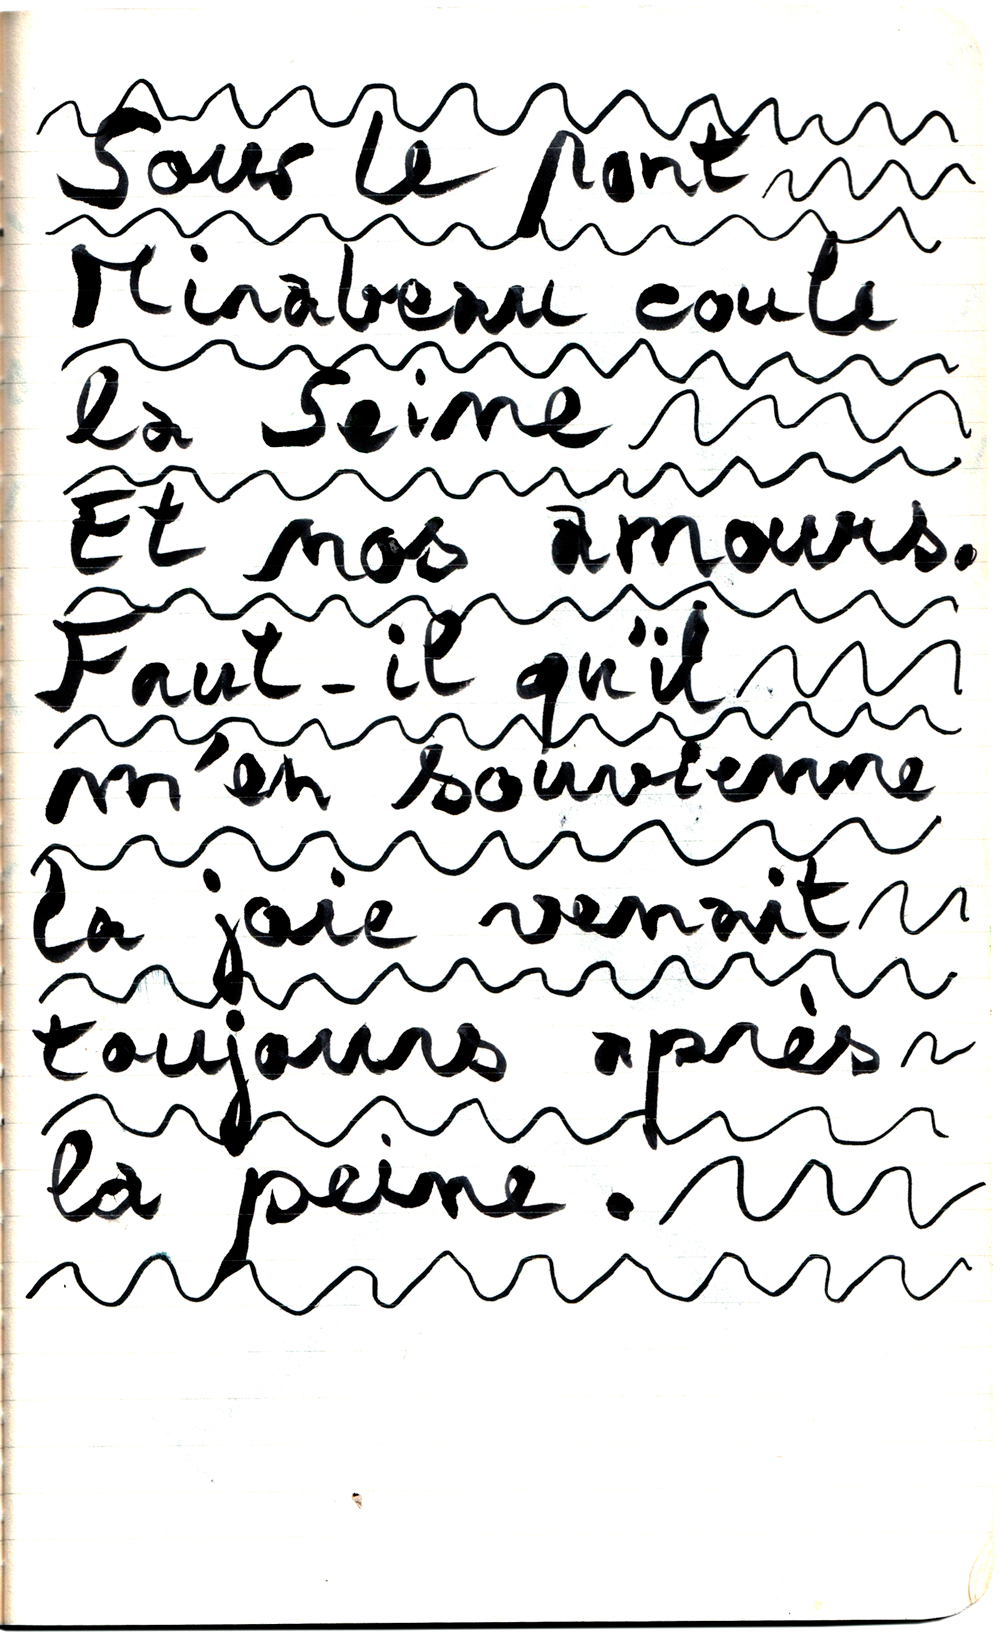 Sous le pont
Mirabeau coule
la Seine
Et nos amours.
Faut-il qu'il
m'en souvienne
la joie venait
toujours après
la peine.